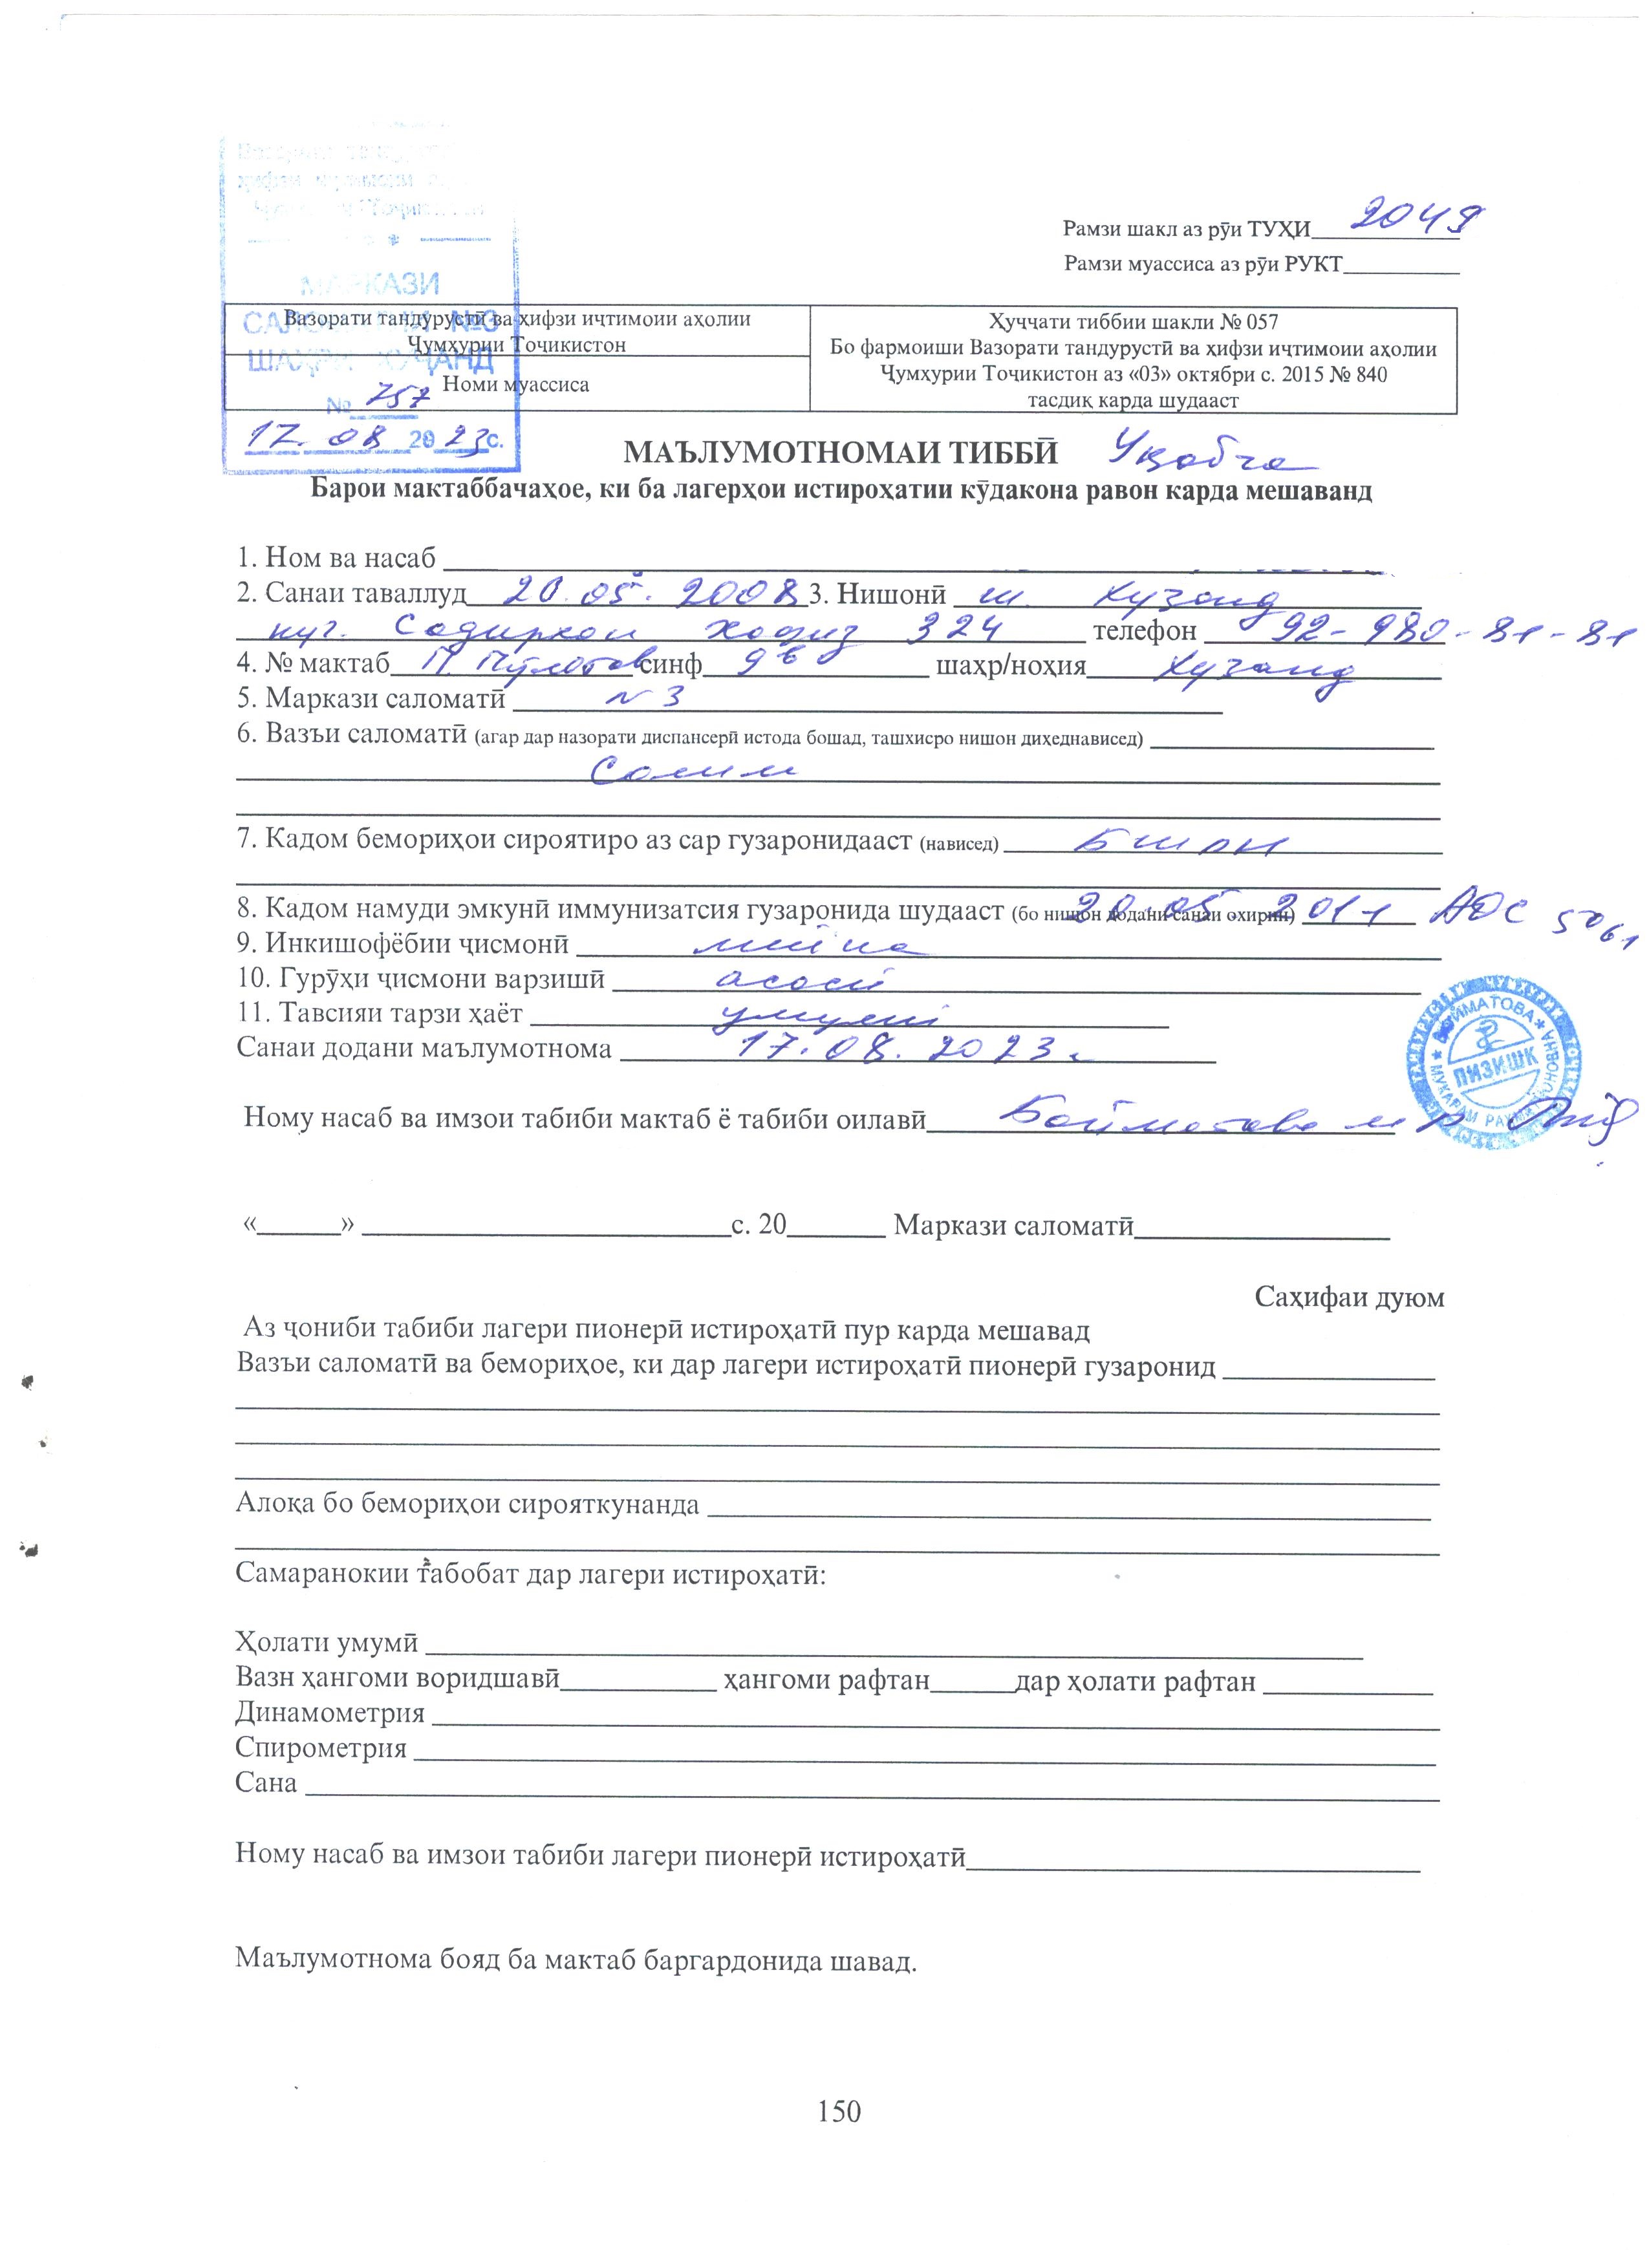 Вазорати тандурустӣ
ҳифзи иҷтимоии
Ҷумҳурии Тоҷикистон
МАРКАЗИ
САЛОМАТИИ №3
ШАҲРИ ХУҶАНД
№ 757
17.08 2023с.
Рамзи шакл аз рӯи ТУҲИ 2049
Рамзи муассиса аз рӯи РУКТ
Вазорати тандурустӣ ва ҳифзи иҷтимоии аҳолии
Ҷумҳурии Тоҷикистон
Номи муассиса
Ҳуҷҷати тиббии шакли № 057
Бо фармоиши Вазорати тандурустӣ ва ҳифзи иҷтимоии аҳолии
Ҷумҳурии Тоҷикистон аз «03» октябри с. 2015 № 840
тасдиқ карда шудааст
МАЪЛУМОТНОМАИ ТИББӢ Уқобча
Барои мактаббачаҳое, ки ба лагерҳои истироҳатии кӯдакона равон карда мешаванд
1. Ном ва насаб
2. Санаи таваллуд 20.05.2008 3. Нишонӣ ш. Хуҷанд
куч. Содирхон Хофиз 324 телефон 92-980-81-81
4. № мактаб П. Пӯлотов синф 9в шаҳр/ноҳия Хуҷанд
5. Маркази саломатӣ №3
6. Вазъи саломатӣ (агар дар назорати диспансерӣ истода бошад, ташхисро нишон диҳеднависед)
Солим
7. Кадом бемориҳои сироятиро аз сар гузаронидааст (нависед)
8. Кадом намуди эмкунӣ иммунизатсия гузаронида шудааст (бо нишон додани санаи охирин) 20.05.2011 АДС
9. Инкишофёбии ҷисмонӣ миёна
10. Гурӯҳи ҷисмони варзишӣ асосӣ
11. Тавсияи тарзи ҳаёт умумӣ
Санаи додани маълумотнома 17.08.2023
БОЙМАТОВА МУКАРАМ РАХМАТҶОНОВНА
ПИЗИШК
Ному насаб ва имзои табиби мактаб ё табиби оилавӣ Бойматова м р
«______» с. 20 Маркази саломатӣ
Саҳифаи дуюм
Аз ҷониби табиби лагери пионерӣ истироҳатӣ пур карда мешавад
Вазъи саломатӣ ва бемориҳое, ки дар лагери истироҳатӣ пионерӣ гузаронид
Алоқа бо бемориҳои сирояткунанда
Самаранокии табобат дар лагери истироҳатӣ:
Ҳолати умумӣ
Вазн ҳангоми воридшавӣ ҳангоми рафтан дар ҳолати рафтан
Динамометрия
Спирометрия
Сана
Ному насаб ва имзои табиби лагери пионерӣ истироҳатӣ
Маълумотнома бояд ба мактаб баргардонида шавад.
150